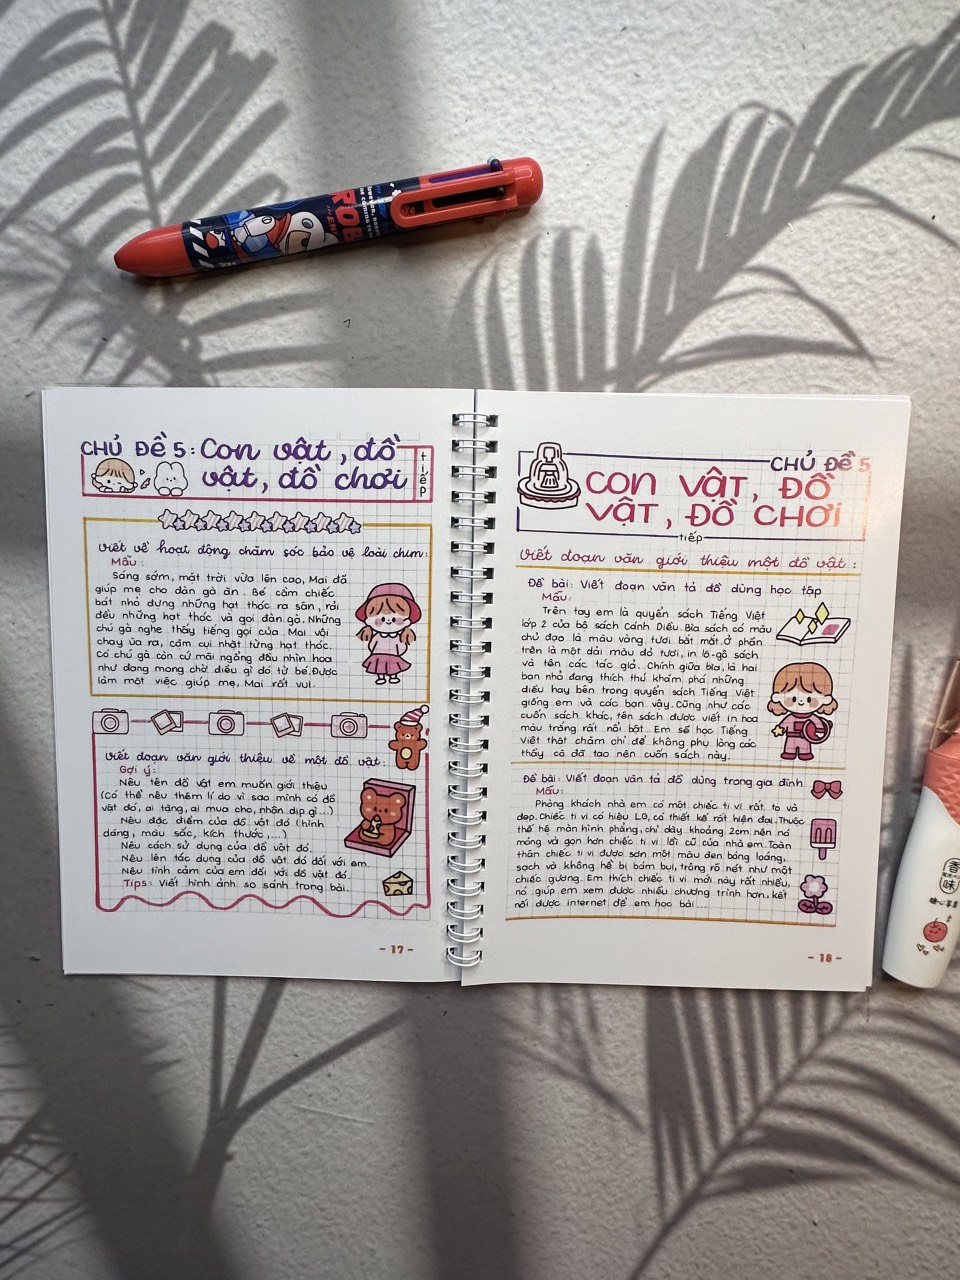 ROB
CHỦ ĐỀ 5: Con vật, đồ
vật, đồ chơi
tiếp
Viết về hoạt động chăm sóc bảo vệ loài chim:
Mẫu:
Sáng sớm, mặt trời vừa lên cao, Mai đã
giúp mẹ cho đàn gà ăn. Bé cầm chiếc
bát nhỏ đựng những hạt thóc ra sân, rải
đều những hạt thóc và gọi đàn gà. Những
chú gà nghe thấy tiếng gọi của Mai vội
chạy ùa ra, cắm cúi nhặt từng hạt thóc.
Có chú gà còn cứ mãi ngẩng đầu nhìn hoa
như đang mong chờ điều gì đó từ bé. Được
làm một việc giúp mẹ, Mai rất vui.
Viết đoạn văn giới thiệu về một đồ vật:
Gợi ý:
Nêu tên đồ vật em muốn giới thiệu
(Có thể nêu thêm lí do vì sao mình có đồ
vật đó, ai tặng, ai mua cho, nhân dịp gì...)
Nêu đặc điểm của đồ vật đó (hình
dáng, màu sắc, kích thước,...)
Nêu cách sử dụng của đồ vật đó.
Nêu lên tác dụng của đồ vật đó đối với em.
Nêu tình cảm của em đối với đồ vật đó.
Tips: Viết hình ảnh so sánh trong bài.
- 17 -
CHỦ ĐỀ 5
CON VẬT, ĐỒ
VẬT, ĐỒ CHƠI
tiếp
Viết đoạn văn giới thiệu một đồ vật:
Đề bài: Viết đoạn văn tả đồ dùng học tập
Mẫu:
Trên tay em là quyển sách Tiếng Việt
lớp 2 của bộ sách Cánh Diều. Bìa sách có màu
chủ đạo là màu vàng tươi bắt mắt. Ở phần
trên là một dải màu đỏ tươi, in lô-gô sách
và tên các tác giả. Chính giữa bìa, là hai
bạn nhỏ đang thích thú khám phá những
điều hay bên trong quyển sách Tiếng Việt
giống em và các bạn vậy. Cũng như các
cuốn sách khác, tên sách được viết in hoa
màu trắng rất nổi bật. Em sẽ học Tiếng
Việt thật chăm chỉ để không phụ lòng các
thầy cô đã tạo nên cuốn sách này.
Đề bài: Viết đoạn văn tả đồ dùng trong gia đình
Mẫu:
Phòng khách nhà em có một chiếc ti vi rất to và
đẹp. Chiếc ti vi có hiệu LG, có thiết kế rất hiện đại. Thuộc
thế hệ màn hình phẳng, chỉ dày khoảng 2cm nên nó
mỏng và gọn hơn chiếc ti vi lồi cũ của nhà em. Toàn
thân chiếc ti vi được sơn một màu đen bóng loáng,
sạch và không hề bị bám bụi, trông rõ nét như một
chiếc gương. Em thích chiếc ti vi mới này rất nhiều,
nó giúp em xem được nhiều chương trình hơn, kết
nối được internet để em học bài...
- 18 -
香
味